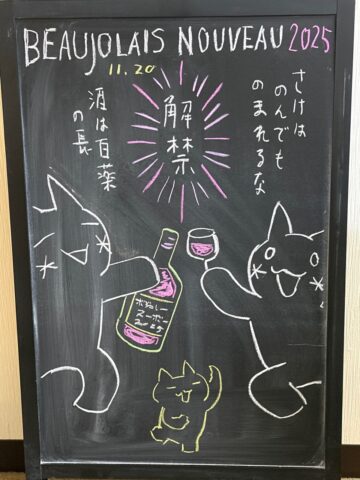 BEAUJOLAIS NOUVEAU 2025
11.20
解禁
さけは
のんでも
のまれるな
酒は百薬
の長
ボジョレー
ヌーボー
2025